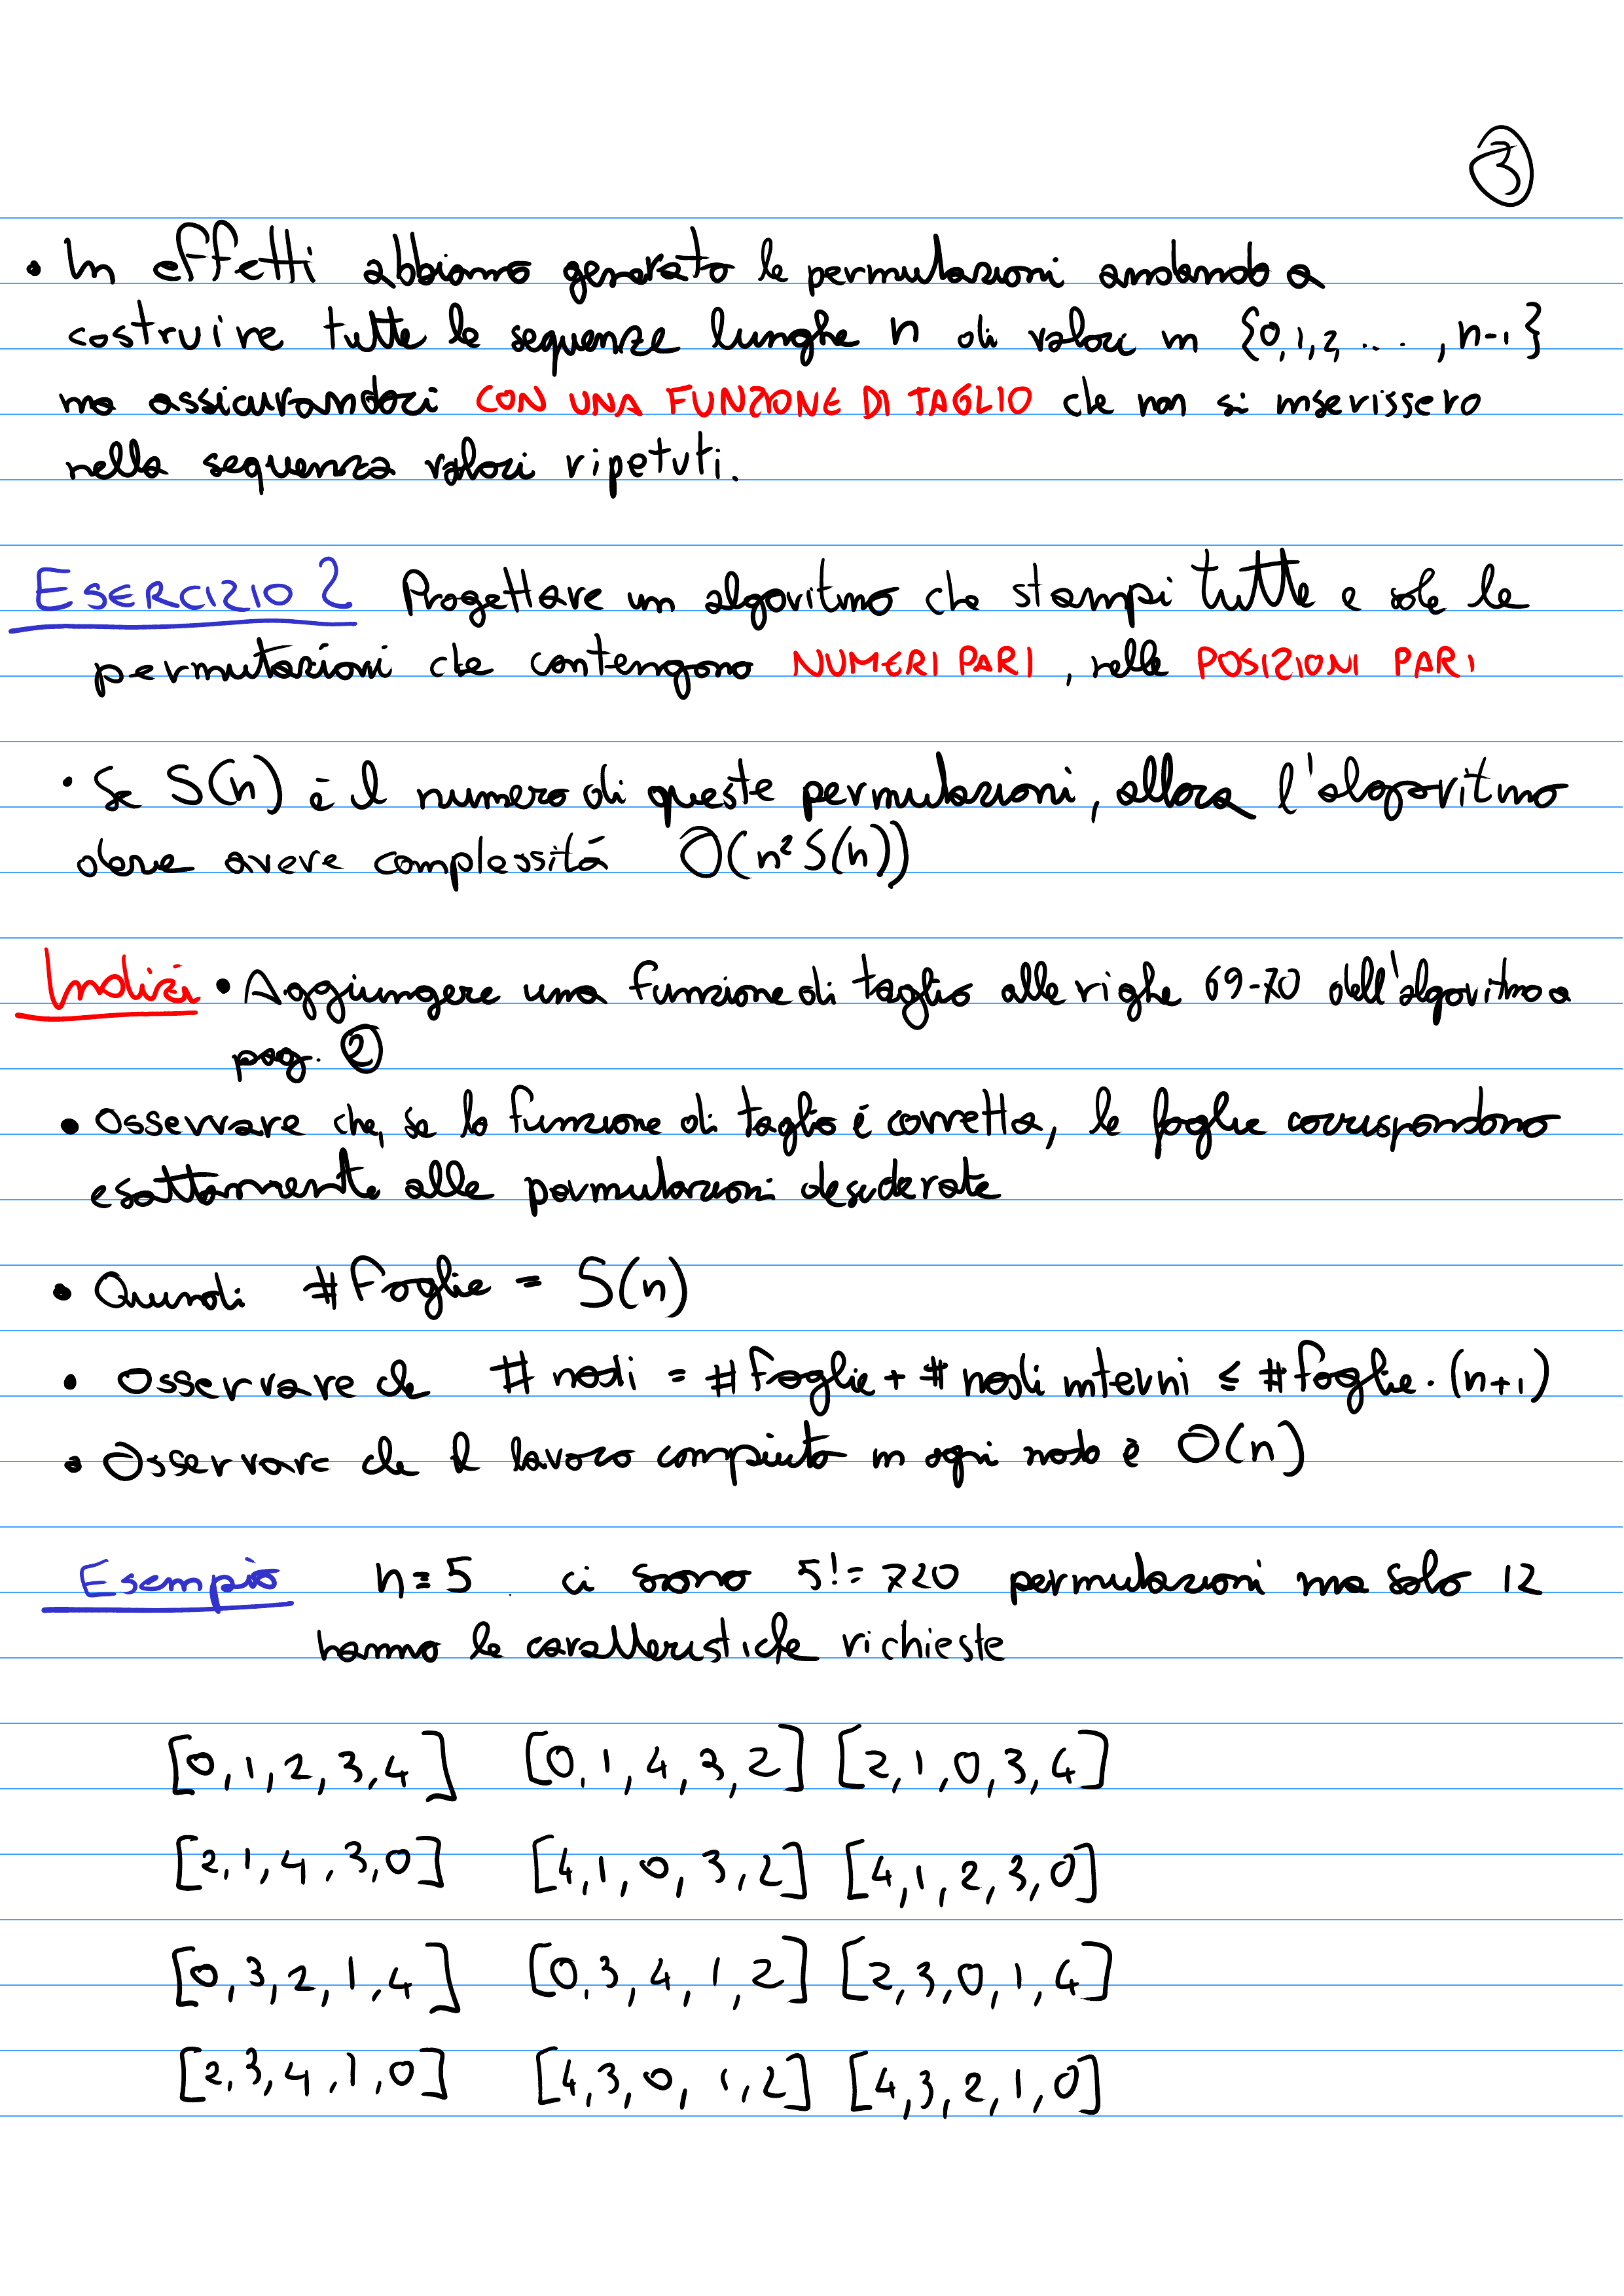 3
• In effetti abbiamo generato le permutazioni andando a
costruire tutte le sequenze lunghe n di valori in {0,1,2, ... , n-1}
ma assicurandoci CON UNA FUNZIONE DI TAGLIO che non si inserissero
nella sequenza valori ripetuti.
ESERCIZIO 2 Progettare un algoritmo che stampi tutte e sole le
permutazioni che contengono NUMERI PARI, nelle POSIZIONI PARI
• Se S(n) è il numero di queste permutazioni, allora l'algoritmo
deve avere complessità O(n² S(n))
Indizi • Aggiungere una funzione di taglio alle righe 69-70 dell'algoritmo a
pag. 2
• Osservare che, se la funzione di taglio è corretta, le foglie corrispondono
esattamente alle permutazioni desiderate
• Quindi #foglie = S(n)
• Osservare che # nodi = #foglie + # nodi interni ≤ #foglie · (n+1)
• Osservare che il lavoro compiuto in ogni nodo è O(n)
Esempio n=5 ci sono 5! = 720 permutazioni ma solo 12
hanno le caratteristiche richieste
[0,1,2,3,4] [0,1,4,3,2] [2,1,0,3,4]
[2,1,4,3,0] [4,1,0,3,2] [4,1,2,3,0]
[0,3,2,1,4] [0,3,4,1,2] [2,3,0,1,4]
[2,3,4,1,0] [4,3,0,1,2] [4,3,2,1,0]